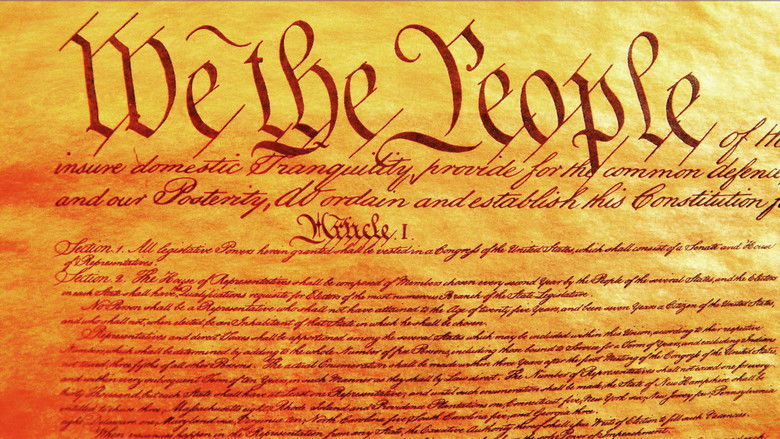 We the People of th
insure domestic Tranquility, provide for the common defence
and our Posterity, do ordain and establish this Constitution f
Article I
Section 1. All legislative Powers herein granted shall be vested in a Congress of the United States, which shall consist of a Senate and House
of Representatives.
Section 2. The House of Representatives shall be composed of Members chosen every second Year by the People of the several States, and the Electors
in each State shall have Qualifications requisite for Electors of the most numerous Branch of the State Legislature.
No Person shall be a Representative who shall not have attained to the Age of twenty five Years, and been seven Years a Citizen of the United States,
and who shall not, when elected, be an Inhabitant of that State in which he shall be chosen.
Representatives and direct Taxes shall be apportioned among the several States which may be included within this Union, according to their respective
Numbers, which shall be determined by adding to the whole Number of free Persons, including those bound to Service for a Term of Years, and excluding Indians
not taxed, three fifths of all other Persons. The actual Enumeration shall be made within three Years after the first Meeting of the Congress of the United States,
and within every subsequent Term of ten Years, in such Manner as they shall by Law direct. The Number of Representatives shall not exceed one for every
thirty Thousand, but each State shall have at Least one Representative; and until such enumeration shall be made, the State of New Hampshire shall be
entitled to chuse three, Massachusetts eight, Rhode Island and Providence Plantations one, Connecticut five, New York six, New Jersey four, Pennsylvania
eight, Delaware one, Maryland six, Virginia ten, North Carolina five, South Carolina five, and Georgia three.
When vacancies happen in the Representation from any State, the Executive Authority thereof shall issue Writs of Election to fill such Vacancies.